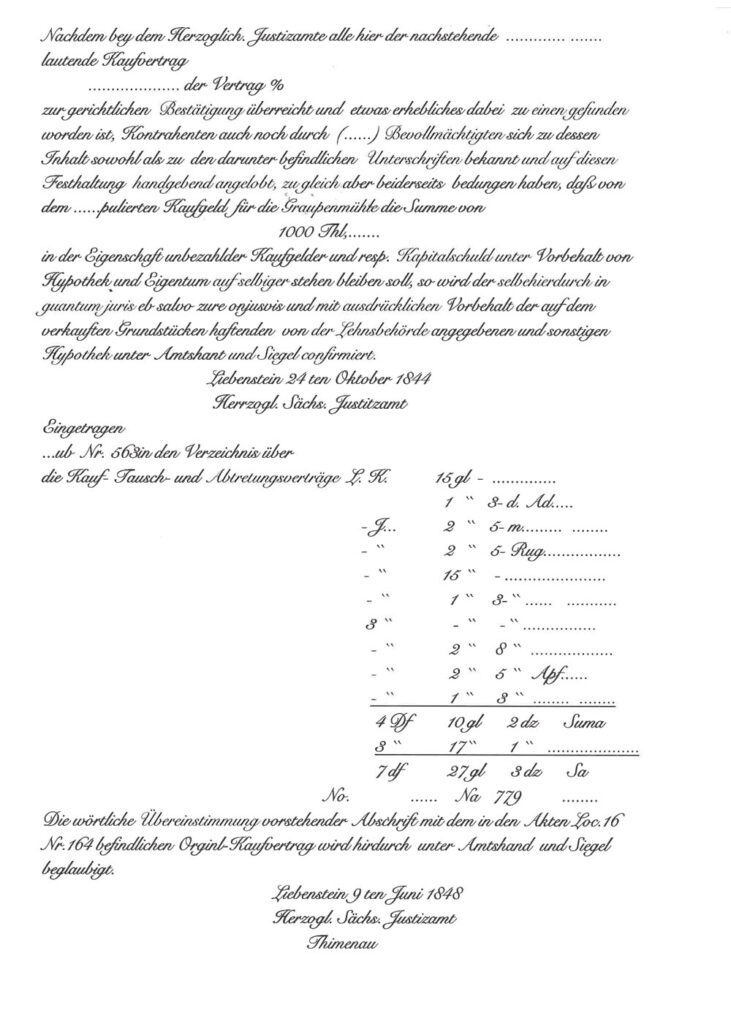 Nachdem bey dem Herzoglich. Justizamte alle hier der nachstehende ............. .......
lautende Kaufvertrag
..................... der Vertrag %
zur gerichtlichen Bestätigung überreicht und etwas erhebliches dabei zu einen gefunden
worden ist, Kontrahenten auch noch durch (......) Bevollmächtigten sich zu dessen
Inhalt sowohl als zu den darunter befindlichen Unterschriften bekannt und auf diesen
Festhaltung handgebend angelobt, zu gleich aber beiderseits bedungen haben, daß von
dem ......pulierten Kaufgeld für die Graupenmühle die Summe von
1000 Thl,.......
in der Eigenschaft unbezahlder Kaufgelder und resp. Kapitalschuld unter Vorbehalt von
Hypothek und Eigentum auf selbiger stehen bleiben soll, so wird der selbehierdurch in
quantum juris eb salvo zure onjusvis und mit ausdrücklichen Vorbehalt der auf dem
verkauften Grundstücken haftenden von der Lehnsbehörde angegebenen und sonstigen
Hypothek unter Amtshant und Siegel confirmiert.
Liebenstein 24 ten Oktober 1844
Herrzogl. Sächs. Justitzamt
Eingetragen
...ub Nr. 563in den Verzeichnis über
die Kauf- Tausch- und Abtretungsverträge L. K. 15 gl - ..............
1 " 3- d. Ad.....
- J... 2 " 5- m......... ........
- " 2 " 5- Rug.................
- " 15 " - .......................
- " 1 " 3- " ...... ...........
3 " - " - " ................
- " 2 " 8 " ...................
- " 2 " 5 " Apf......
- " 1 " 3 " ........ ........
4 Df 10 gl 2 dz Suma
3 " 17 " 1 " .....................
7 df 27 gl 3 dz Sa
No. ...... Na 779 ........
Die wörtliche Übereinstimmung vorstehender Abschrift mit dem in den Akten Loc. 16
Nr. 164 befindlichen Orginl-Kaufvertrag wird hirdurch unter Amtshand und Siegel
beglaubigt.
Liebenstein 9 ten Juni 1848
Herzogl. Sächs. Justizamt
Thimenau